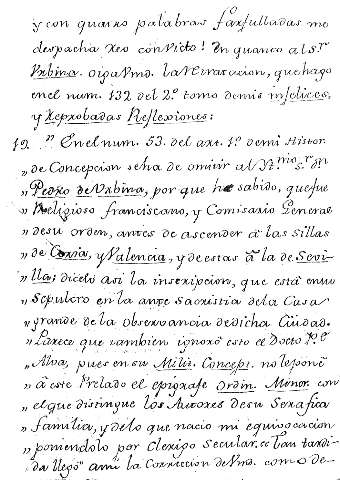 y con quatro palabras farfulladas me
despacha reo convicto! En quanto al S.r
Urbina. oiga Vmd. la retractacion, que hago
en el num. 132 del 2.º tomo de mis infelices,
y reprobadas Reflexiones:
12 " En el num. 53. del art. 1.º de mi Histor.
" de Concepcion se ha de omitir al Y.mo S.r Dn
" Pedro de Urbina, por que he sabido, que fue
" Religioso franciscano, y Comisario General
" de su orden, antes de ascender â las Sillas
" de Coria, y Valencia, y de estas â la de Sevi-
" lla; dicelo asi la inscripcion, que està en su
" Sepulcro en la ante Sacristia de la Casa
" grande de la Observancia de dicha Ciudad.
" Parece que tambien ignorò esto el Docto P.e
" Alva, pues en su Milit. Concept. no le pone
" â este Prelado el epigrafe Ordin. Minor con
" el que distingue los Autores de su Serafica
" familia, y de lo que naciò mi equivocacion
" poniendolo por Clerigo Secular. &c Tan tardi-
" da llegò" a mi la Correccion de Vmd. como de-